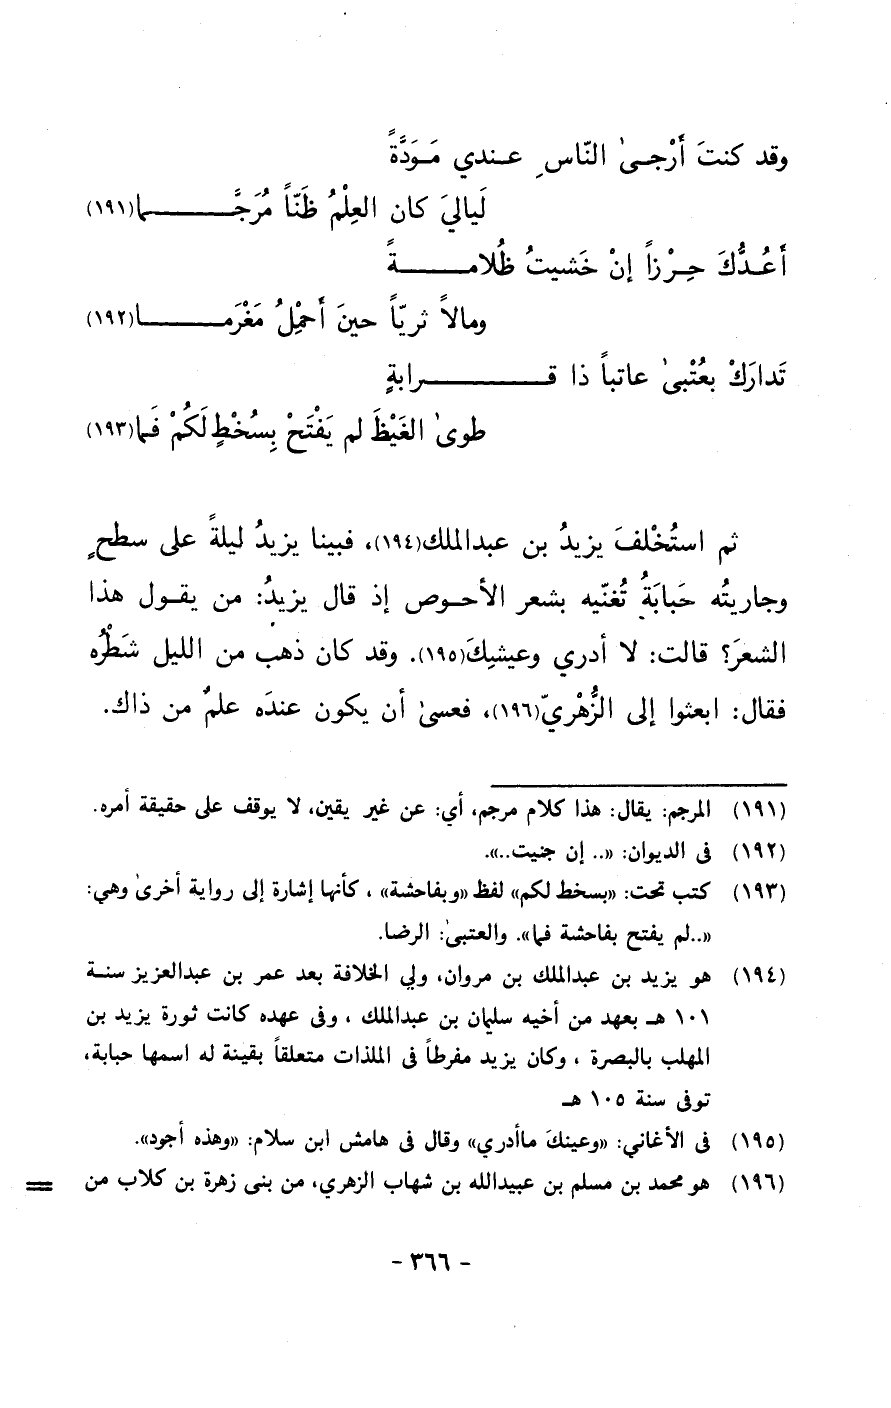 وقد كنتَ أَرْجىٰ النّاسِ عندي مَوَدَّةً
لَيالِيَ كان العِلْمُ ظَنّاً مُرَجَّما(١٩١)
أَعُدُّكَ حِرْزاً إنْ خَشيتُ ظُلامةً
ومالاً ثريّاً حينَ أَحْمِلُ مَغْرَما(١٩٢)
تَدارَكْ بعُتْبىٰ عاتباً ذا قرابةٍ
طوىٰ الغَيْظَ لم يَفْتَحْ بِسُخْطٍ لَكُمْ فَما(١٩٣)
ثم استُخْلفَ يزيدُ بن عبدالملك(١٩٤)، فبينا يزيدُ ليلةً على سطحٍ
وجاريتُه حَبابَةُ تُغنّيه بشعر الأحوص إذ قال يزيدُ: من يقول هذا
الشعرَ؟ قالت: لا أدري وعيشِكَ(١٩٥). وقد كان ذهب من الليل شَطْرُه
فقال: ابعثوا إلى الزُّهْريّ(١٩٦)، فعسىٰ أن يكون عندَه علمٌ من ذاك.
(١٩١) المرجم: يقال: هذا كلام مرجم، أي: عن غير يقين، لا يوقف على حقيقة أمره.
(١٩٢) فى الديوان: «.. إن جنيت..».
(١٩٣) كتب تحت: «بسخط لكم» لفظ «وبفاحشة» ، كأنها إشارة إلى رواية أخرىٰ وهي:
«..لم يفتح بفاحشة فما». والعتبىٰ: الرضا.
(١٩٤) هو يزيد بن عبدالملك بن مروان، ولي الخلافة بعد عمر بن عبدالعزيز سنة
١٠١ هـ بعهد من أخيه سليمان بن عبدالملك ، وفى عهده كانت ثورة يزيد بن
المهلب بالبصرة ، وكان يزيد مفرطاً فى الملذات متعلقاً بقينة له اسمها حبابة،
توفى سنة ١٠٥ هـ
(١٩٥) فى الأغاني: «وعينكَ ماأدري» وقال فى هامش ابن سلام: «وهذه أجود».
(١٩٦) هو محمد بن مسلم بن عبيدالله بن شهاب الزهري، من بنى زهرة بن كلاب من =
- ٣٦٦ -